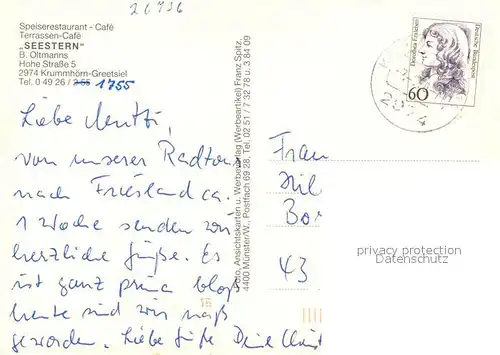 26736
Speiserestaurant - Café
Terrassen-Café
„SEESTERN"
B. Oltmanns
Hohe Straße 5
2974 Krummhörn-Greetsiel
Tel. 0 49 26 / 2 55 1755
Liebe Mutti,
von unserer Radtour
nach Friesland ca.
1 Woche senden wir
herzliche Grüße. Es
ist ganz prima bloß
heute sind wir naß
geworden. Liebe Grüße Deine
Foto, Ansichtskarten u. Werbeverlag (Werbeartikel) Franz Spitz,
4400 Münster/W., Postfach 69 28, Tel. 02 51 / 7 32 78 u. 3 84 09
Dorothea Erxleben
Deutsche Bundespost
60
2974
Frau
Hil
Bor
43
privacy protection
Datenschutz